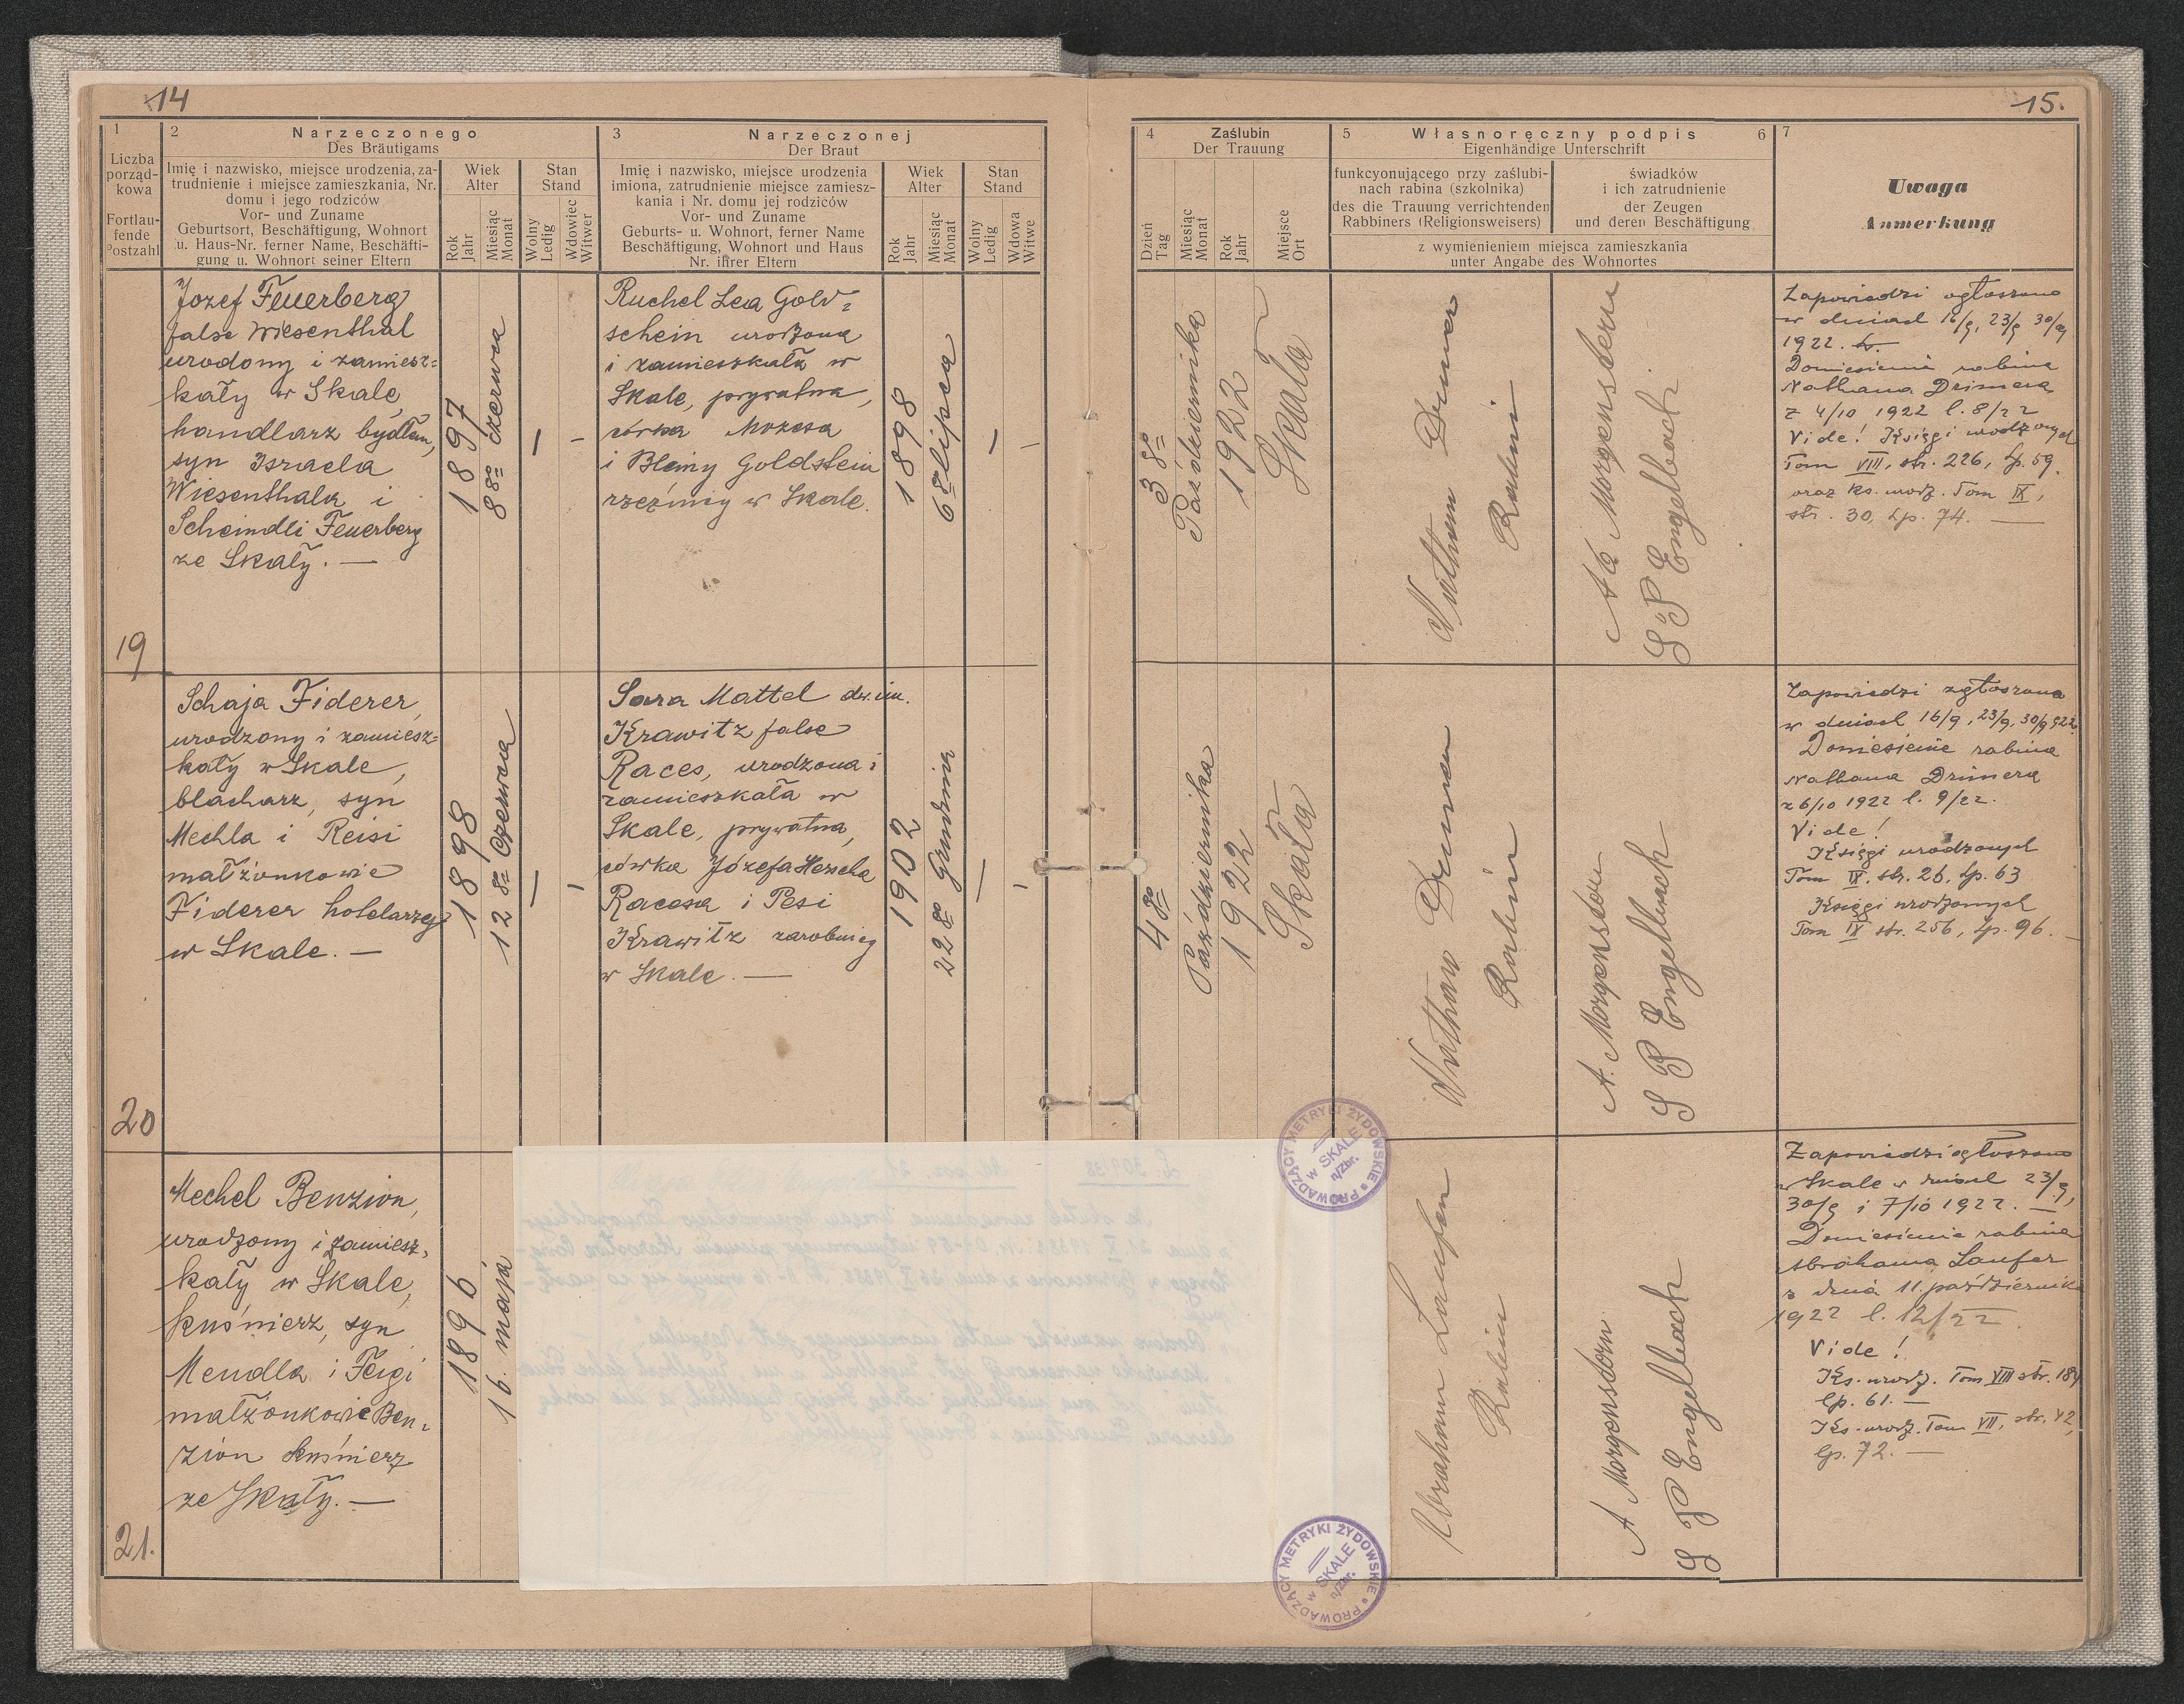 14
15.
1
Liczba
porząd-
kowa
Fortlau-
fende
Postzahl
2
Narzeczonego
Des Bräutigams
Imię i nazwisko, miejsce urodzenia, za-
trudnienie i miejsce zamieszkania, Nr.
domu i jego rodziców
Vor- und Zuname
Geburtsort, Beschäftigung, Wohnort
u. Haus-Nr. ferner Name, Beschäfti-
gung u. Wohnort seiner Eltern
Wiek
Alter
Rok
Jahr
Miesiąc
Monat
Stan
Stand
Wolny
Ledig
Wdowiec
Witwer
3
Narzeczonej
Der Braut
Imię i nazwisko, miejsce urodzenia
imiona, zatrudnienie miejsce zamiesz-
kania i Nr. domu jej rodziców
Vor- und Zuname
Geburts- u. Wohnort, ferner Name
Beschäftigung, Wohnort und Haus
Nr. ihrer Eltern
Wiek
Alter
Rok
Jahr
Miesiąc
Monat
Stan
Stand
Wolny
Ledig
Wdowa
Witwe
4
Zaślubin
Der Trauung
Dzień
Tag
Miesiąc
Monat
Rok
Jahr
Miejsce
Ort
5
Własnoręczny podpis
6
Eigenhändige Unterschrift
funkcyonującego przy zaślubi-
nach rabina (szkolnika)
des die Trauung verrichtenden
Rabbiners (Religionsweisers)
świadków
i ich zatrudnienie
der Zeugen
und deren Beschäftigung
z wymienieniem miejsca zamieszkania
unter Angabe des Wohnortes
7
Uwaga
Anmerkung
19
Jozef Feuerberg
false Wiesenthal
urodony i zamiesz=
kały w Skale,
handlarz bydłem,
syn Israela
Wiesenthala i
Scheindli Feuerberg
ze Skały. —
1897
8go czerwca
Ruchel Lea Gold=
schein urodzona
i zamieszkała w
Skale, prywatna,
córka Mozesa
i Bleiny Goldstein
rzeźnicy w Skale.
1898
6go lipca
3go
Października
1922
Skała
Nathan Drimer
Rabin
A Morgenstern
S P Engelbach
Zapowiedzi ogłoszono
w dniach 16/9, 23/9 30/9
1922.
Doniesienie rabina
Nathana Drimera
z 4/10 1922 l. 8/22
Vide! Księgi urodzonych
Tom VIII, str. 226, lp. 59.
oraz ks. urodz. Tom IX,
str. 30, Lp. 74. —
20
Schaja Fiderer,
urodzony i zamiesz=
kały w Skale,
blacharz, syn
Mechla i Reisi
małżonkowie
Fiderer hotelarzy
w Skale. —
1898
12go Czerwca
Sara Mattel dw. im.
Krawitz false
Races, urodzona i
zamieszkała w
Skale, prywatna,
córka Józefa Herscha
Racesa i Pesi
Krawitz zarobnicy
w Skale. —
1902
22go Grudznia
4go
Października
1922
Skała
Nathan Drimer
Rabin
A. Morgenstern
S P Engelbach
Zapowiedzi ogłoszono
w dniach 16/9, 23/9, 30/9 922.
Doniesienie rabina
Nathana Drimera
z 6/10 1922 l. 9/22.
Vide!
Księgi urodzonych
Tom IX, str. 26, Lp. 63
Księgi urodzonych
Tom IX str. 256, Lp. 96. —
21.
Mechel Benzion,
urodzony i zamiesz,
kały w Skale,
kuśnierz, syn
Mendla i Feigi
małżonkowie Ben=
zion kuśnierz
ze Skały. —
1896
16. maja
Abraham Laufer
Rabin
A Morgenstern
S P Engelbach
Zapowiedzi ogłoszono
w Skale w dniach 23/9,
30/9 i 7/10 1922. —
Doniesienie rabina
Abrahama Laufer
z dnia 11. października
1922 l. 12/22.
Vide!
Ks. urodz. Tom VIII str. 184
lp. 61. —
Ks. urodz. Tom VII, str. 42,
lp. 72. —
PROWADZĄCY METRYKI ŻYDOWSKIE
w SKALE
n/Zbr.
PROWADZĄCY METRYKI ŻYDOWSKIE
w SKALE
n/Zbr.